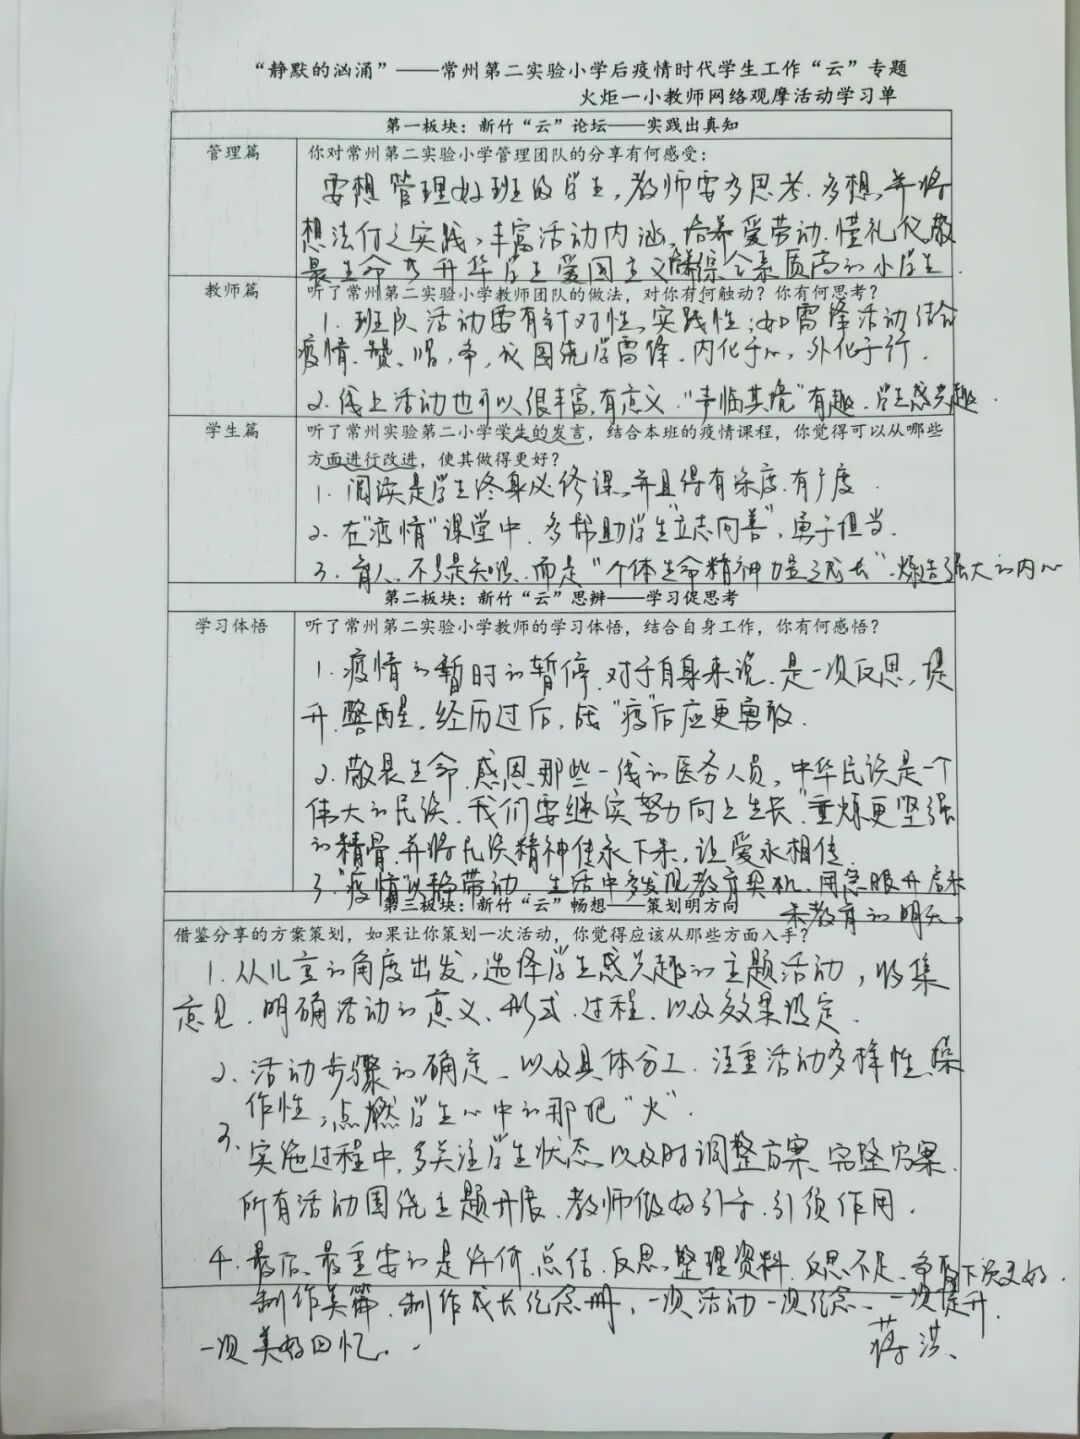 “静默的汹涌”——常州第二实验小学后疫情时代学生工作“云”专题
火炬一小教师网络观摩活动学习单
第一板块：新竹“云”论坛——实践出真知
管理篇
你对常州第二实验小学管理团队的分享有何感受：
要想管理好班级学生，教师要多思考、多想，并将
想法付之实践，丰富活动内涵，培养爱劳动、懂礼仪、敬
畏生命，升华学生爱国主义，综合素质高的小学生。
教师篇
听了常州第二实验小学教师团队的做法，对你有何触动？你有何思考？
1. 班队活动要有针对性、实践性；如雷锋活动结合
疫情、赞、唱、争，围绕学雷锋、内化于心，外化于行。
2. 线上活动也可以很丰富，有意义，“声临其境”有趣，学生感兴趣。
学生篇
听了常州实验第二小学学生的发言，结合本班的疫情课程，你觉得可以从哪些
方面进行改进，使其做得更好？
1. 阅读是学生终身必修课，并且得有深度、有广度。
2. 在“疫情”课堂中，多帮助学生“立志向善”，勇于担当。
3. 育人，不只是知识，而是“个体生命精神力量之成长”，炼造强大的内心
第二板块：新竹“云”思辨——学习促思考
学习体悟
听了常州第二实验小学教师的学习体悟，结合自身工作，你有何感悟？
1. 疫情的暂时的暂停，对于自身来说，是一次反思、提
升、警醒，经历过后，战“疫”后应更勇敢。
2. 敬畏生命，感恩那些一线的医务人员，中华民族是一个
伟大的民族，我们要继续努力向上生长，重炼更坚强
的精骨，并将民族精神传承下来，让爱永相传。
3. “疫情”以静带动，生活中多发现教育契机，用慧眼开启未
第三板块：新竹“云”畅想——策划明方向
来教育的明天。
借鉴分享的方案策划，如果让你策划一次活动，你觉得应该从那些方面入手？
1. 从儿童的角度出发，选择学生感兴趣的主题活动，收集
意见，明确活动的意义、形式、过程、以及效果设定。
2. 活动步骤的确定，以及具体分工，注重活动多样性、操
作性，点燃学生心中的那把“火”。
3. 实施过程中，多关注学生状态，以及时调整方案、完整方案，
所有活动围绕主题开展，教师做好引导、引领作用。
4. 最后、最重要的是评价、总结、反思、整理资料，反思不足，争取下次更好，
制作美篇，制作成长纪念册，一次活动一次纪念、一次提升，
一次美好回忆。
蒋洪